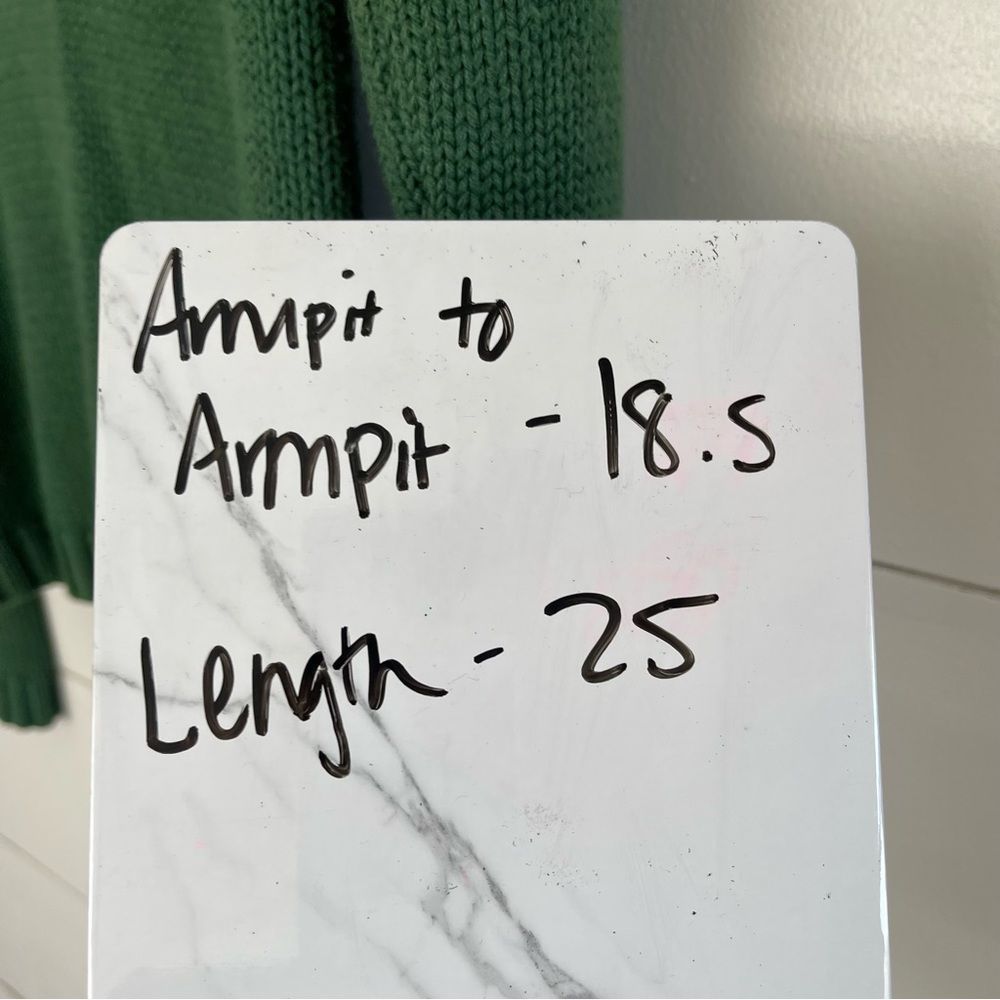 Armpit to
Armpit - 18.5
Length - 25